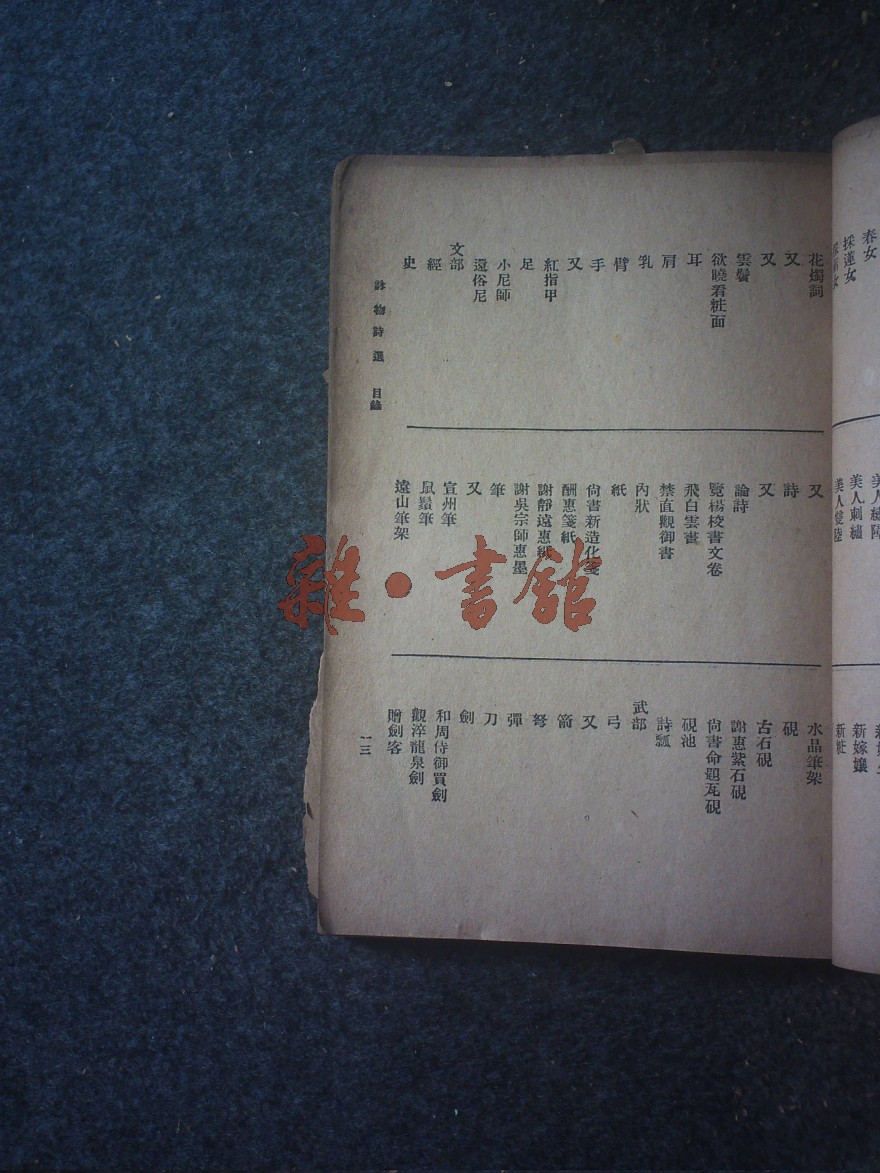 春女
採蓮女
美人刺繡
美人雙陸
新嫁孃
新粧
花燭詞
又
又
雲鬢
欲曉看粧面
耳
肩
乳
臂
手
又
紅指甲
足
小尼師
還俗尼
文部
經
史
又
詩
又
論詩
覽楊校書文卷
飛白雲書
禁直觀御書
內狀
紙
尙書新造化箋
酬惠箋紙
謝靜遠惠紙
謝吳宗師惠墨
筆
又
宣州筆
鼠鬚筆
遠山筆架
水晶筆架
硯
古石硯
謝惠紫石硯
尙書命題瓦硯
硯池
詩瓢
武部
弓
又
箭
弩
彈
刀
劍
和周侍御買劍
觀淬龍泉劍
贈劍客
詠物詩選 目錄
一三
雜·書館